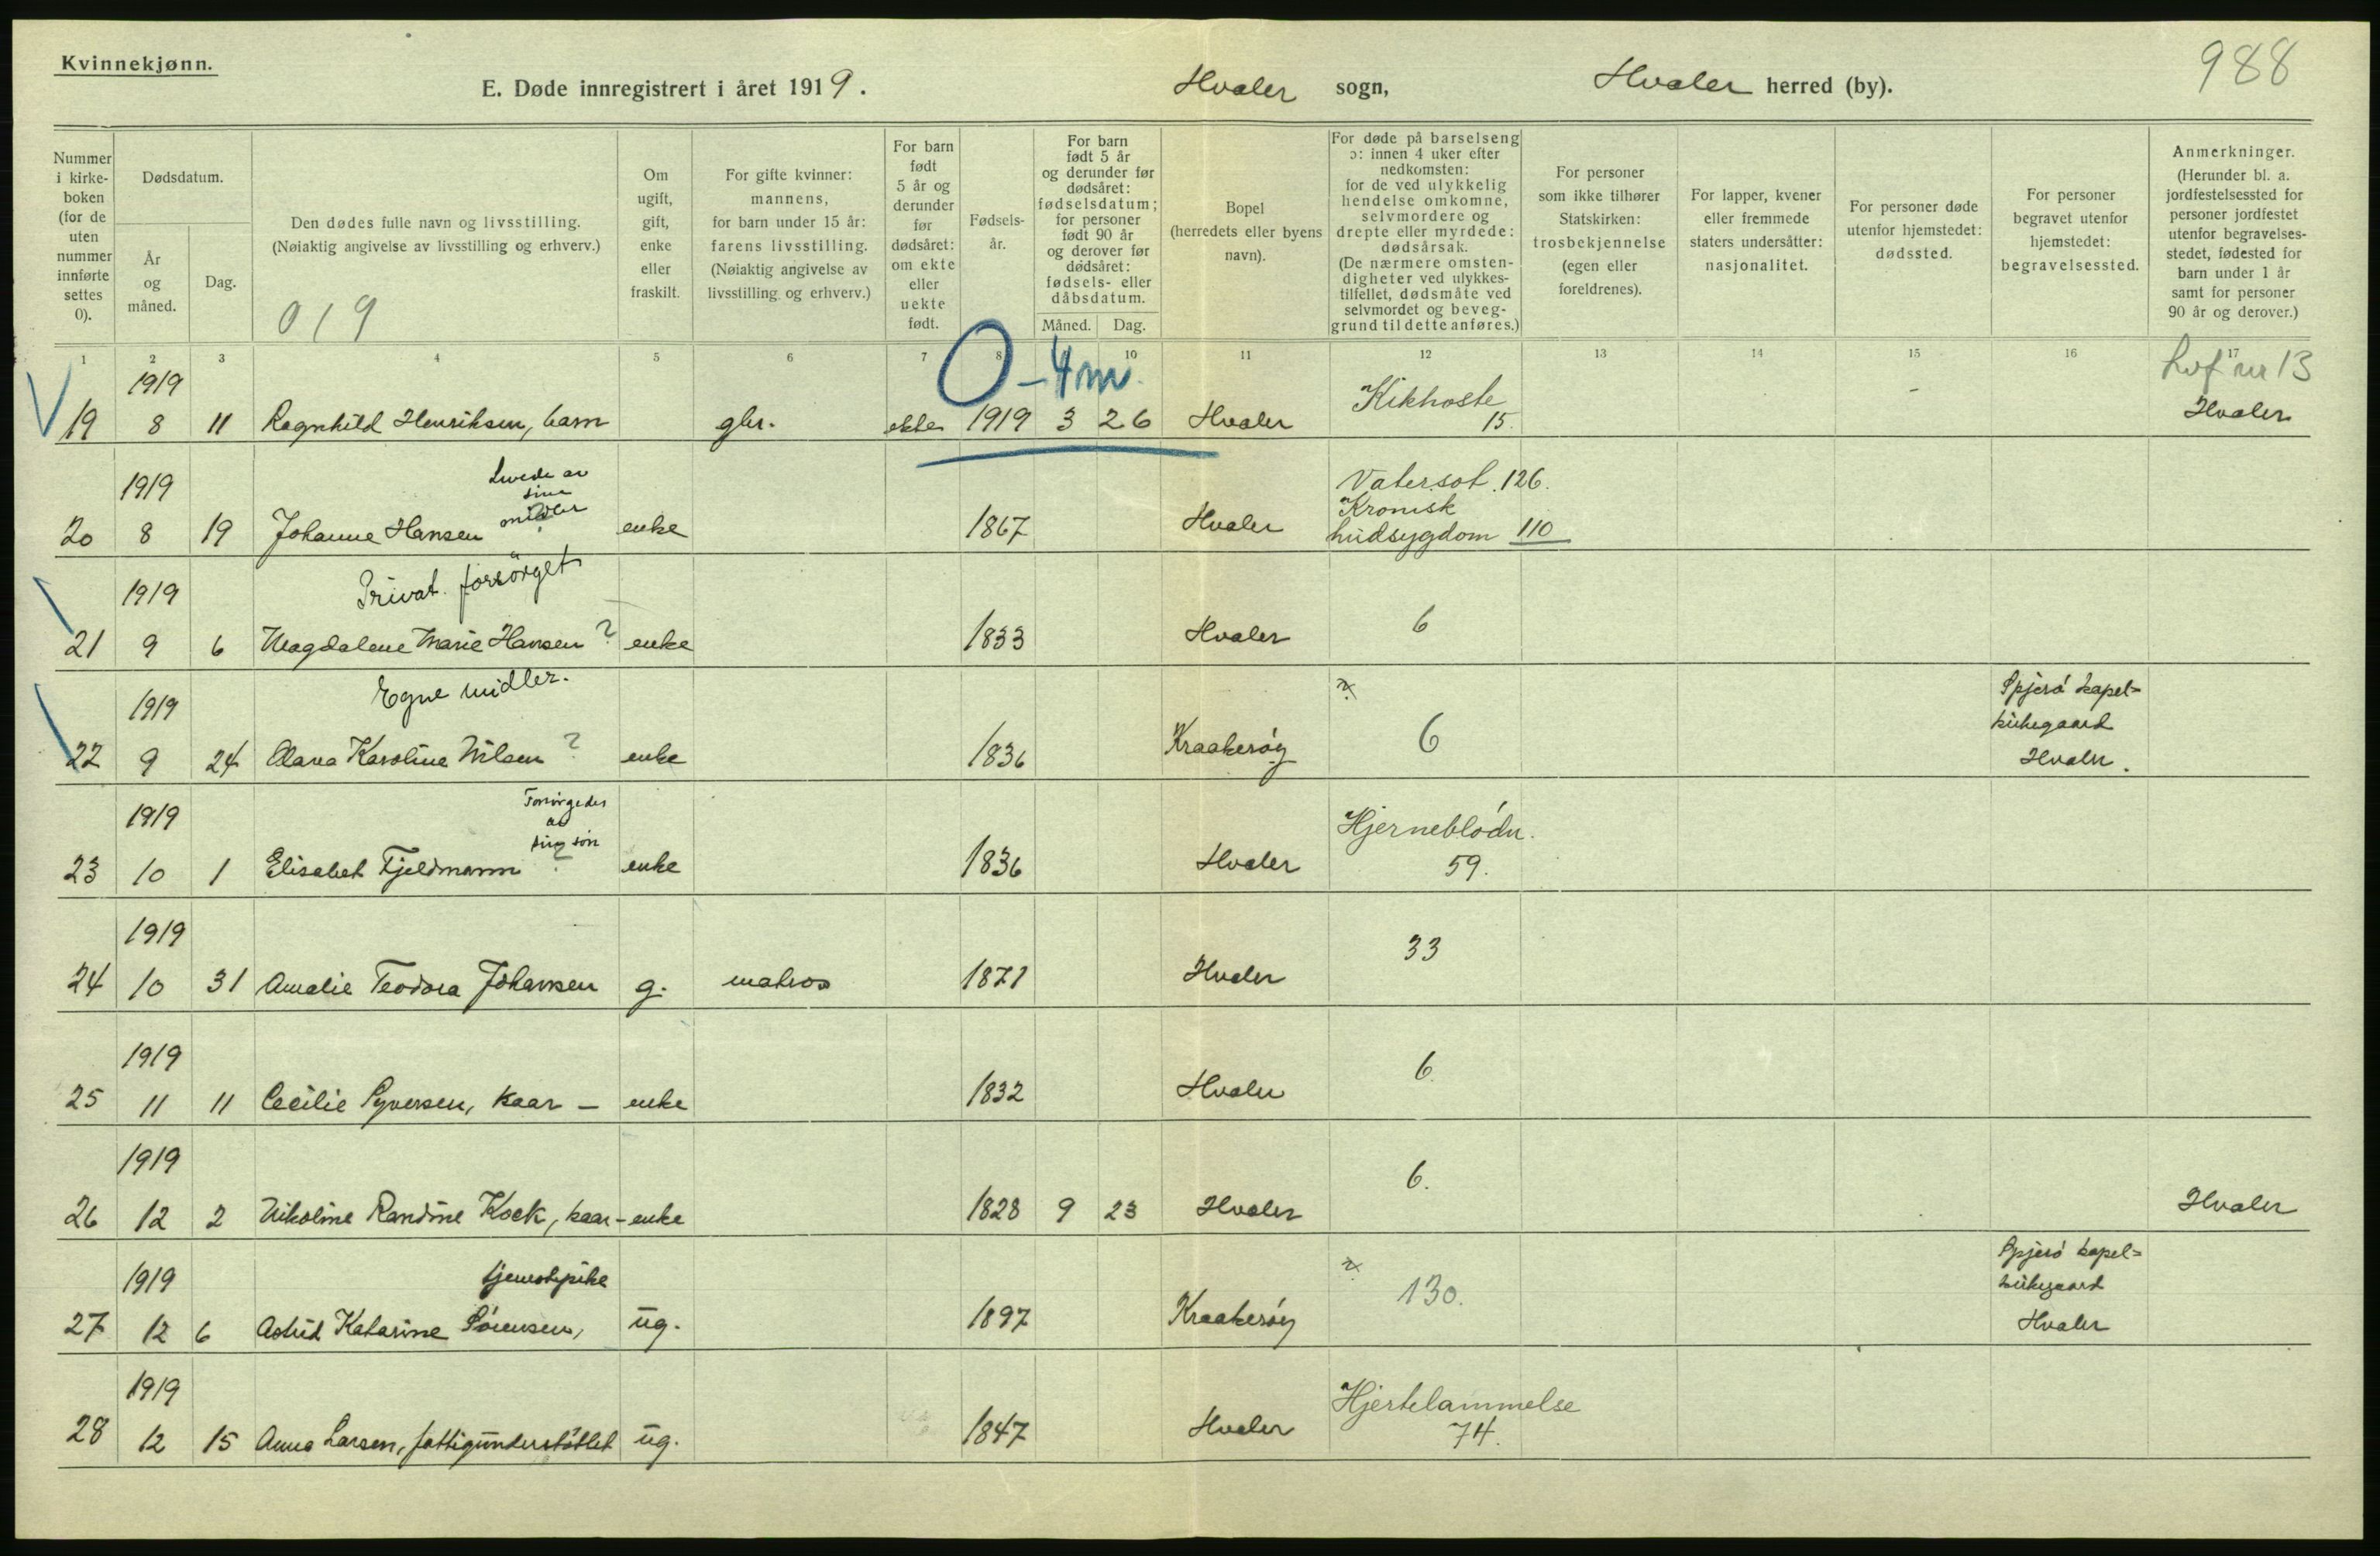 Kvinnekjønn.
988
E. Døde innregistrert i året 1919. Hvaler sogn, Hvaler herred (by).
Nummer i kirke-
boken
(for de
uten
nummer
innførte
settes
0).
Dødsdatum.
År
og
måned.
Dag.
Den dødes fulle navn og livsstilling.
(Nøiaktig angivelse av livsstilling og erhverv.)
019
Om
ugift,
gift,
enke
eller
fraskilt.
For gifte kvinner:
mannens,
for barn under 15 år:
farens livsstilling.
(Nøiaktig angivelse av
livsstilling og erhverv.)
For barn
født
5 år og
derunder
før
dødsåret:
om ekte
eller
uekte
født.
Fødsels-
år.
For barn
født 5 år
og derunder før
dødsåret:
fødselsdatum;
for personer
født 90 år
og derover før
dødsåret:
fødsels- eller
dåbsdatum.
Måned. Dag.
Bopel
(herredets eller byens
navn).
For døde på barselseng
ɔ: innen 4 uker efter
nedkomsten:
for de ved ulykkelig
hendelse omkomne,
selvmordere og
drepte eller myrdede:
dødsårsak.
(De nærmere omsten-
digheter ved ulykkes-
tilfellet, dødsmåte ved
selvmordet og beveg-
grund til dette anføres.)
For personer
som ikke tilhører
Statskirken:
trosbekjennelse
(egen eller
foreldrenes).
For lapper, kvener
eller fremmede
staters undersåtter:
nasjonalitet.
For personer døde
utenfor hjemstedet:
dødssted.
For personer
begravet utenfor
hjemstedet:
begravelsessted.
Anmerkninger.
(Herunder bl. a.
jordfestelsessted for
personer jordfestet
utenfor begravelses-
stedet, fødested for
barn under 1 år
samt for personer
90 år og derover.)
1 2 3 4 5 6 7 8 10 11 12 13 14 15 16 17
0 – 4 m.
nr 13
1919 Kikhoste
19 8 11 Ragnhild Henriksen, barn gbr. ekte 1919 3 26 Hvaler 15. Hvaler
1919 Levede av sine midler Vatersot. 126.
Kronisk
20 8 19 Johanne Hansen ? enke 1867 Hvaler hudsygdom 110
1919 Privat forsørget
21 9 6 Magdalene Marie Hansen ? enke 1833 Hvaler 6
1919 Egne midler. ? Spjerø kapel=
kirkegaard
22 9 24 Olava Karoline Nilsen ? enke 1836 Kraakerøy 6 Hvaler.
1919 Forsørgedes av sin søn Hjerneblødn.
23 10 1 Elisabet Fjeldmann ? enke 1836 Hvaler 59.
1919 33
24 10 31 Amalie Teodora Johansen g. matros 1871 Hvaler
1919 6.
25 11 11 Cecilie Syversen, kaar – enke 1832 Hvaler
1919 6.
26 12 2 Nikoline Randine Kock, kaar – enke 1828 9 23 Hvaler Hvaler
1919 tjenestepike ? 130. Spjerø kapel=
kirkegaard
27 12 6 Astrid Katarine Sørensen, ug. 1897 Kraakerøy Hvaler
1919 Hjertelammelse
28 12 15 Anna Larsen, fattigunderstøttet ug. 1847 Hvaler 74.